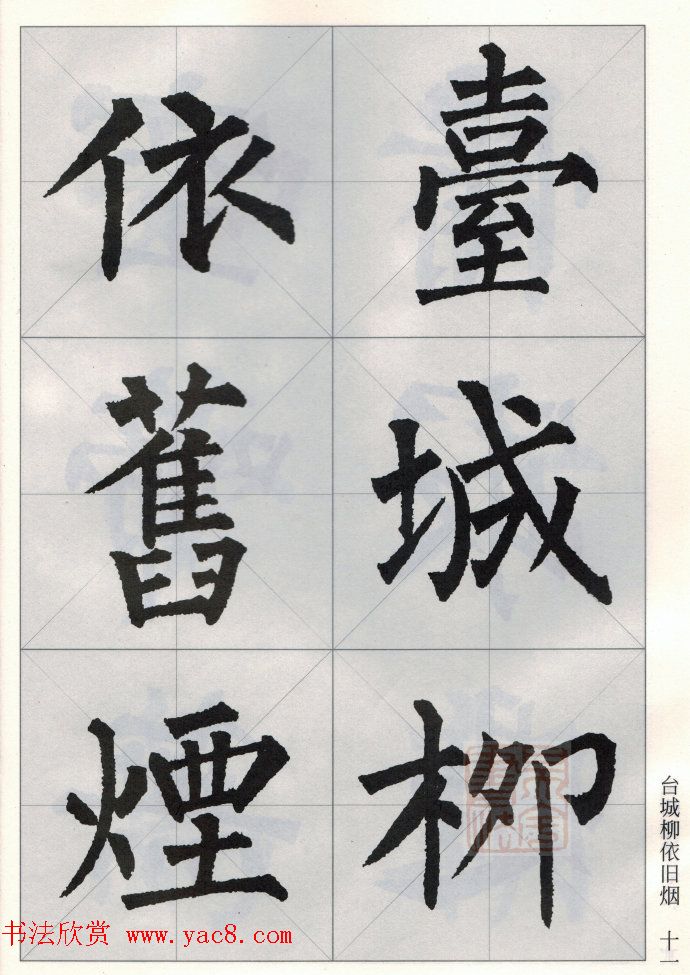 臺城柳
依舊煙
台城柳依旧烟 十一
书法欣赏 www.yac8.com